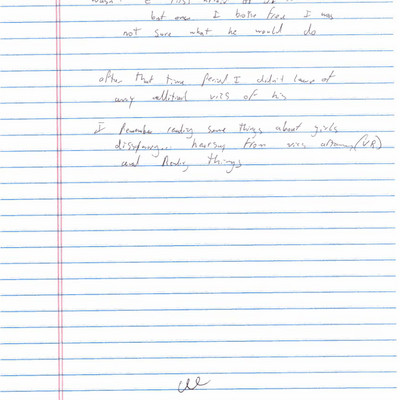 but once I broke free I was
not sure what he would do
after that time period I didn't learn of
any additional of his
I Remember reading some things about girls
hearsay from
and Reading things